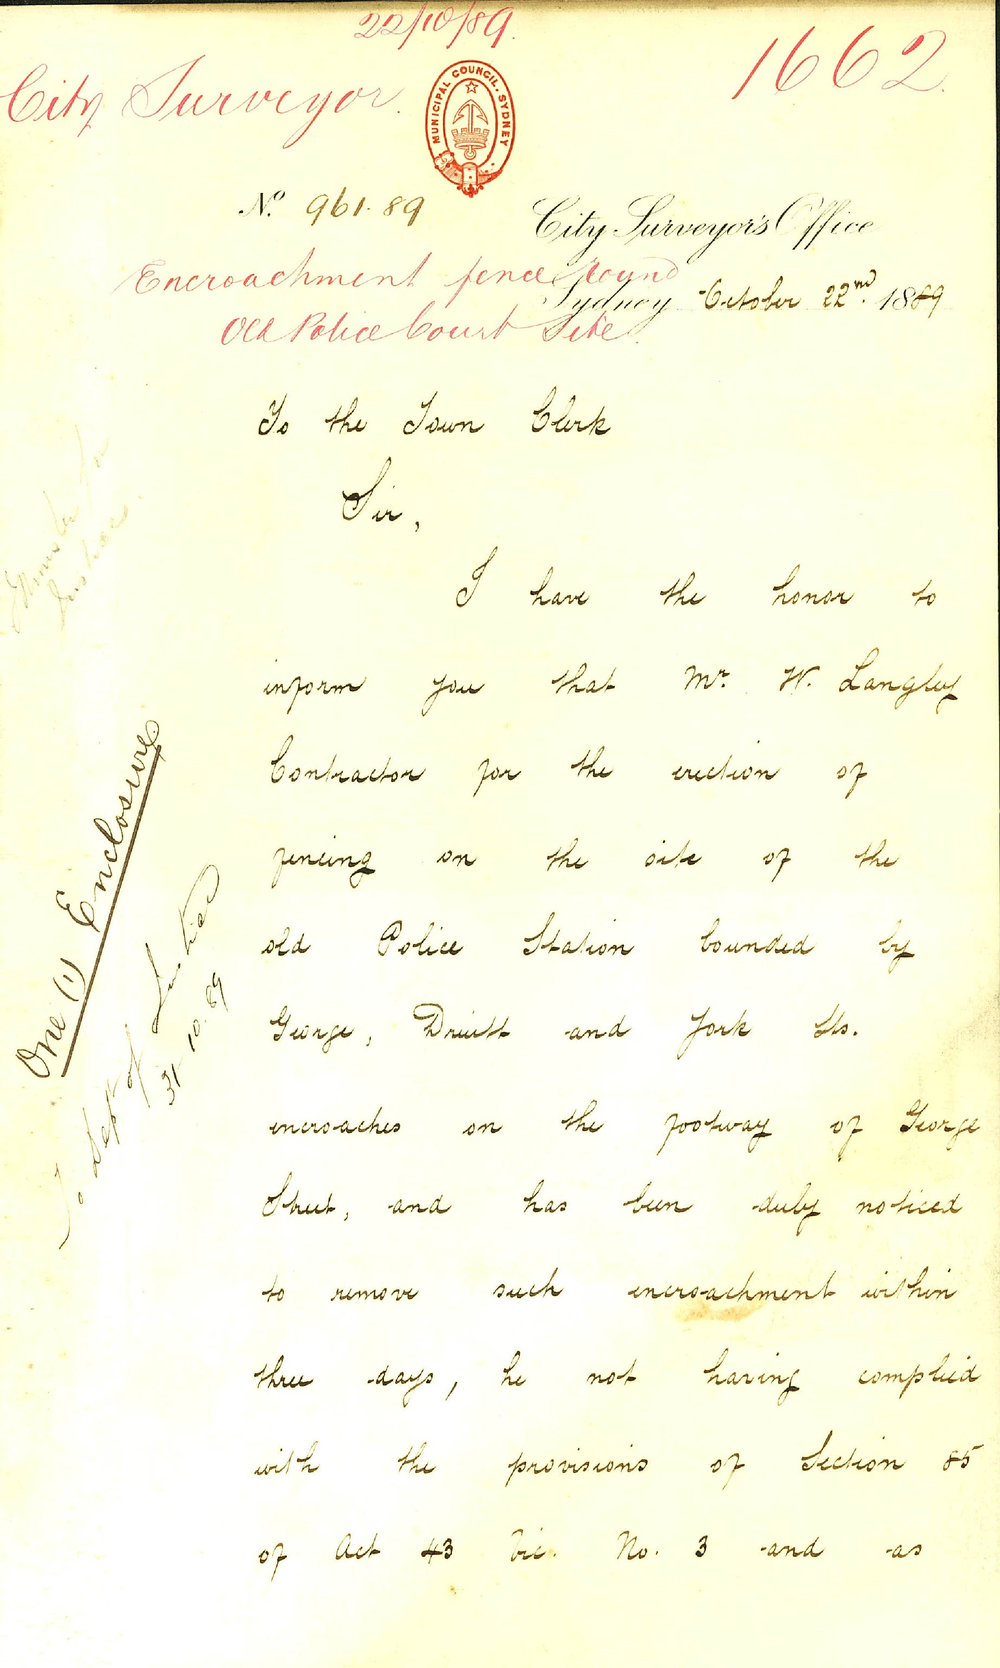 22/10/89.
1662.
City Surveyor.
MUNICIPAL COUNCIL. SYDNEY
No. 961.89
City Surveyor's Office
Encroachment fence round
Sydney October 22nd. 1889
Old Police Court Site.
To the Town Clerk
Sir,
I have the honor to
inform you that Mr. W. Langley
Contractor for the erection of
fencing on the site of the
old Police Station bounded by
George, Druitt and York Sts.
encroaches on the footway of George
Street, and has been duly noticed
to remove such encroachment within
three days, he not having complied
with the provisions of Section 85
of Act 43 Vic. No. 3 and as
Minister for
Justice
One (1) Enclosure
To Dept of Justice
31.10.89